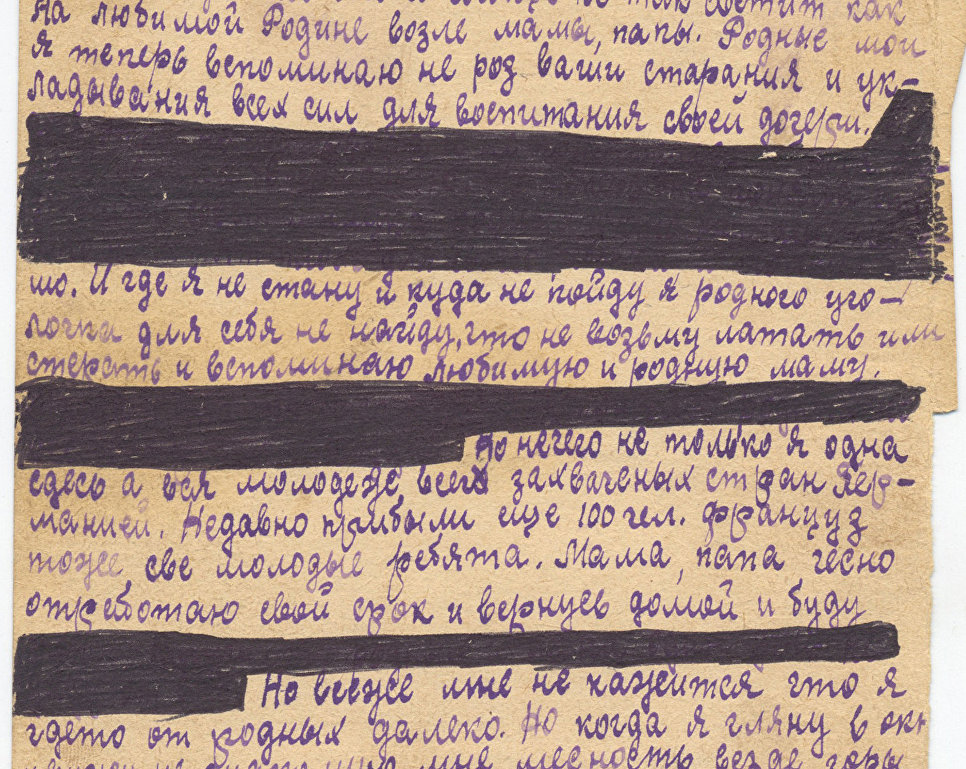 так светит как
на любимой Родине возле мамы, папы. Родные мои
я теперь вспоминаю не роз ваши старания и ук-
ладывания всех сил для воспитания своей дочери.
шо. И где я не стану и куда не пойду я родного уго-
лочка для себя не найду, что не возьму латать или
стерать и вспоминаю любимую и родную маму.
Но нечего не только я одна
сдесь а вся молодеж всех захваченых стран Гер-
манией. Недавно прибыли еще 100 чел. француз
тоже, све молодые ребята. Мама, папа чесно
отработаю свой срок и вернусь домой и буду
Но всеже мне не кажеится что я
гдето от родных далеко. Но когда я гляну в окн
мне месность везде горы